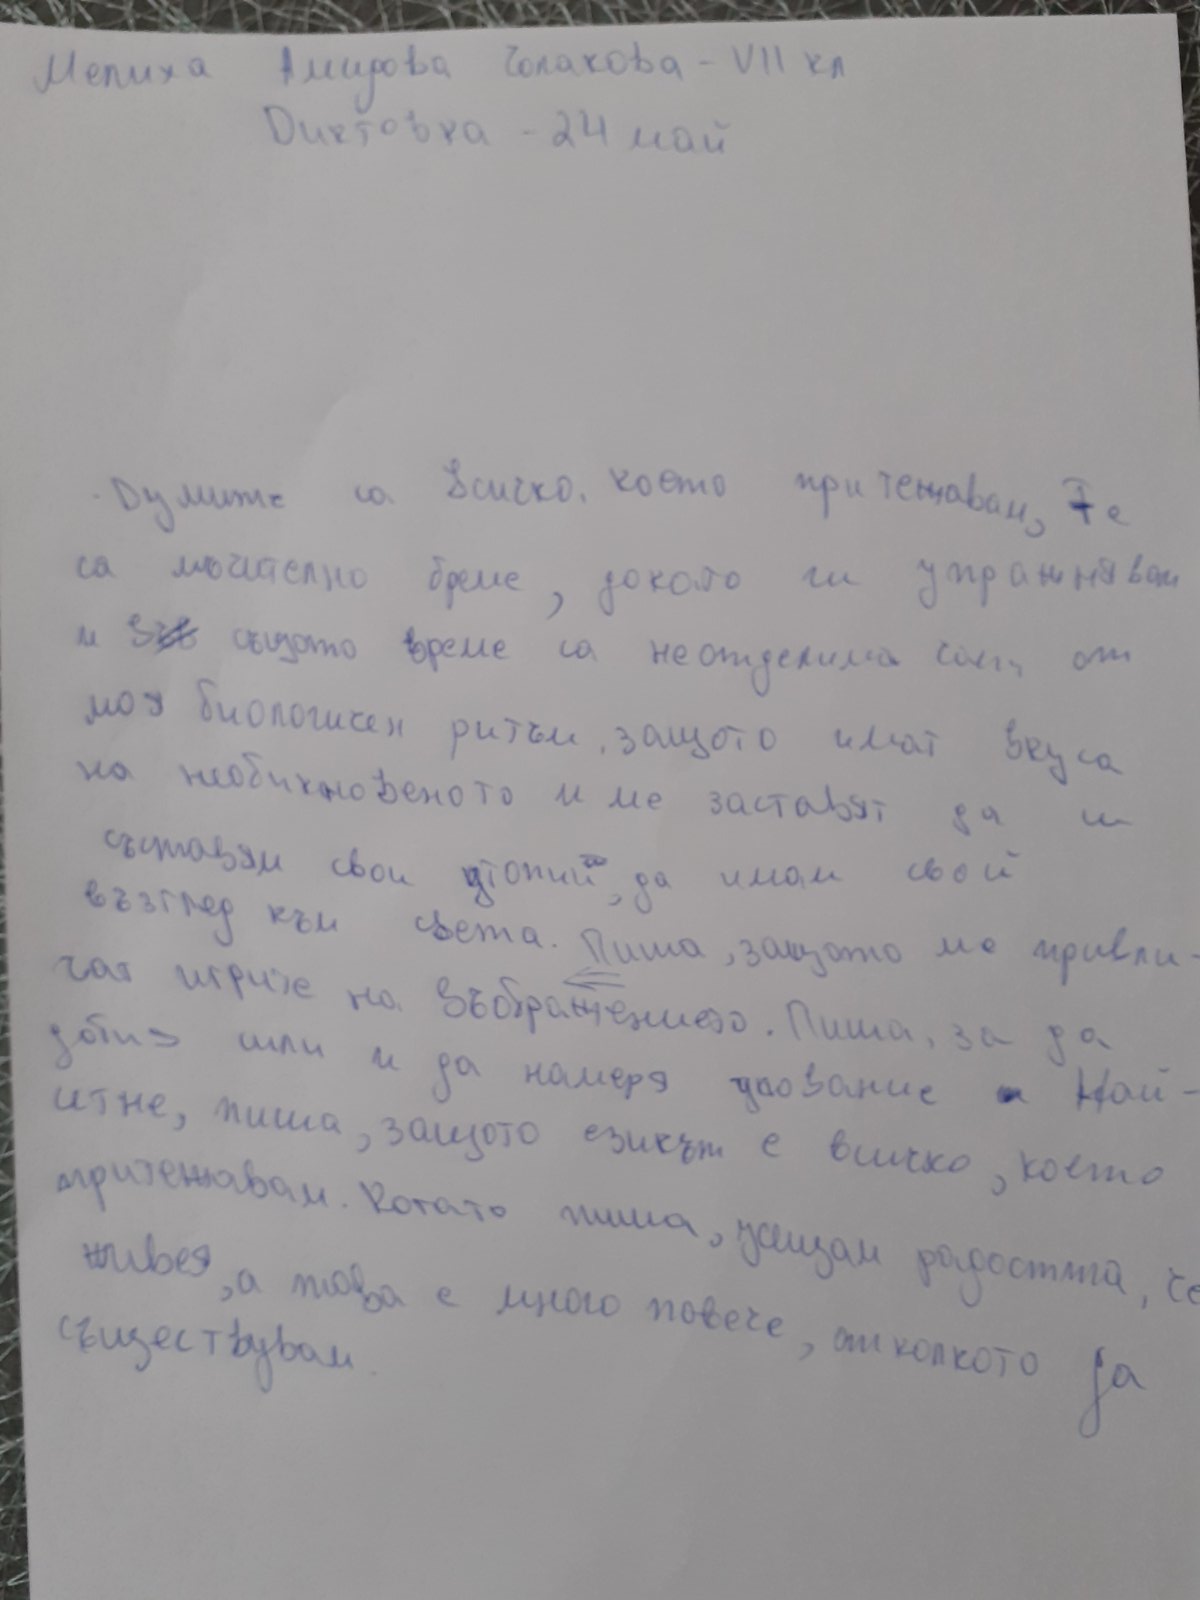 Мелиха Амирова Чолакова - VII кл
Диктовка - 24 май
Думите са всичко. което притежавам, Те
са мъчително бреме, докато ги упражнявам
и същото време са неотделима част от
моя биологичен ритъм, защото имат вкуса
на необикновеното и ме заставят да си
съставям свои утопии, да имам свой
възглед към света. Пиша, защото ме привли-
чат игрите на въображението. Пиша, за да
и да намеря упование Най-
итне, пиша, защото езикът е всичко, което
притежавам. Когато пиша, усещам радостта, че
живея, а това е много повече, отколкото да
съществувам.